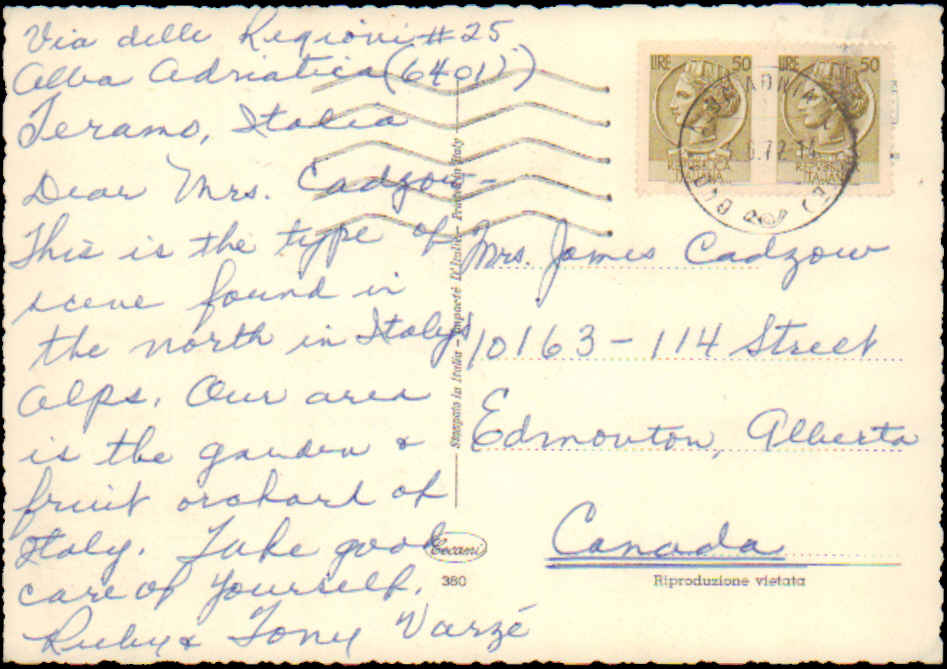 Via delle Regioni #25
Alba Adriatica (6401))
Teramo, Italia
Dear Mrs. Cadzow -
This is the type of
scene found in
the north in Italy's
Alps. Our area
is the garden &
fruit orchard of
Italy. Take good
care of yourself.
Ruby & Tony Varzé
Stampato in Italia - Impacté D'Italie - Printed in Italy
Cecami
380
LIRE 50
REPUBBLICA
ITALIANA
LIRE 50
REPUBBLICA
ITALIANA
Mrs. James Cadzow
10163 - 114 Street
Edmonton, Alberta
Canada
Riproduzione vietata